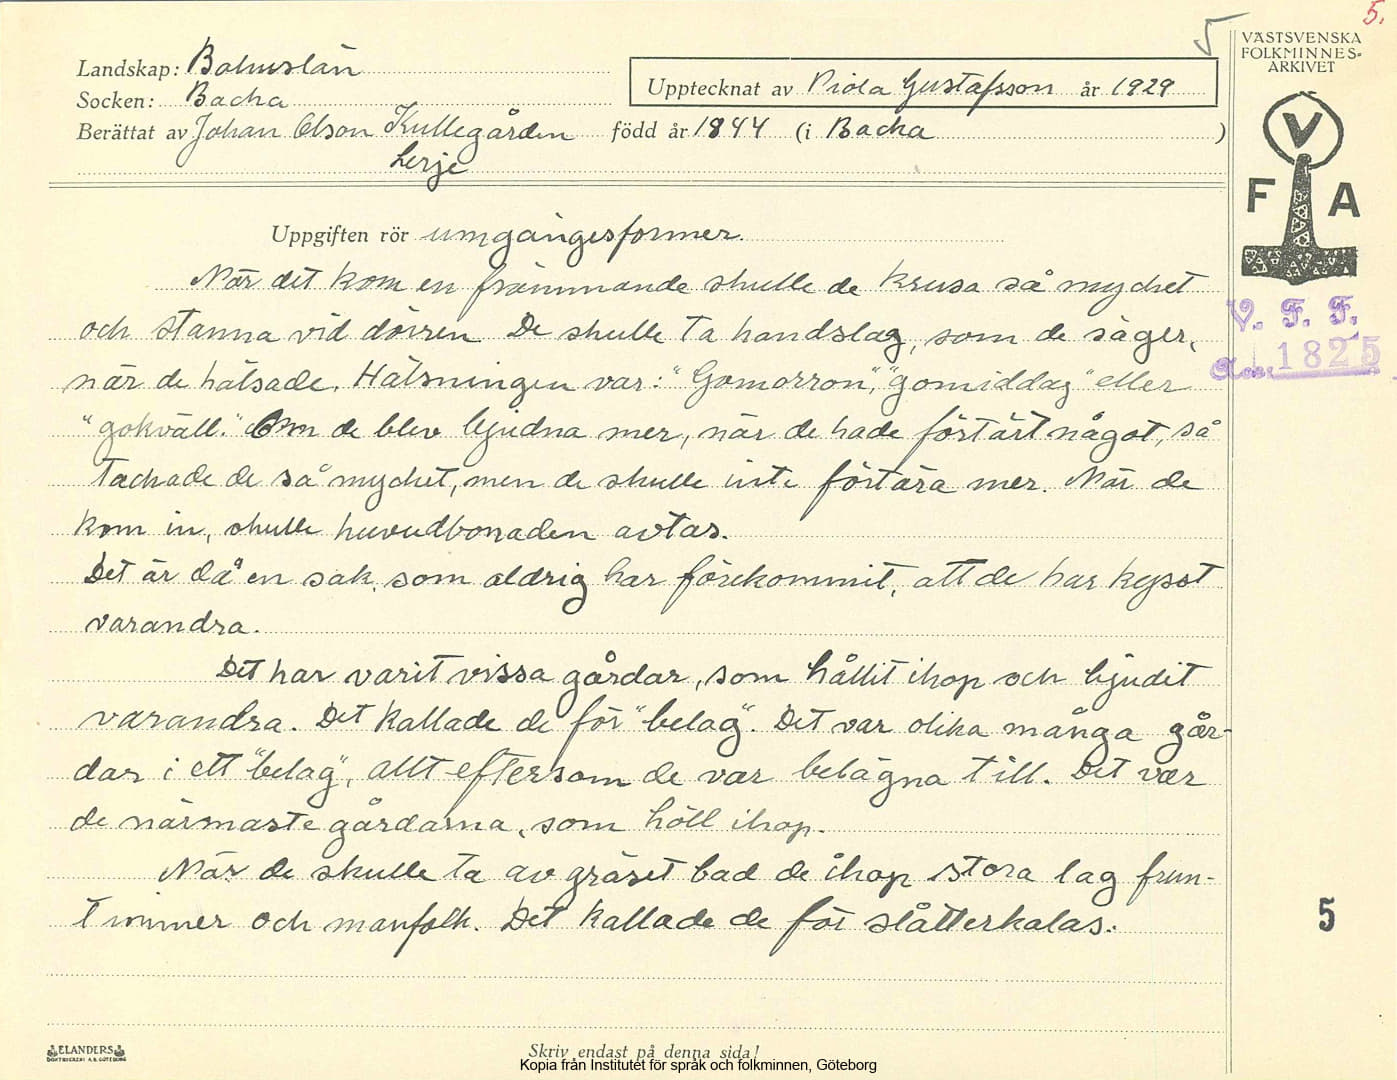 5.
5
VÄSTSVENSKA
FOLKMINNES-
ARKIVET
Landskap: Bohuslän
Socken: Backa
Upptecknat av Viola Gustafsson år 1929
Berättat av Johan Olson Kullegården född år 1844 (i Backa )
Lerje
V
F A
Uppgiften rör umgängesformer.
När det kom en främmande skulle de krusa så mycket
och stanna vid dörren De skulle ta handslag, som de säger,
när de hälsade. Hälsningen var: "Gomorron", "gomiddag" eller
"gokväll." Om de blev bjudna mer, när de hade förtärt något, så
tackade de så mycket, men de skulle inte förtära mer. När de
kom in, skulle huvudbonaden avtas.
Det är då en sak, som aldrig har förekommit, att de har kysst
varandra.
Det har varit vissa gårdar, som hållit ihop och bjudit
varandra. Det kallade de för "belag". Det var olika många går-
dar i ett "belag", allt eftersom de var belägna till. Det var
de närmaste gårdarna, som höll ihop.
När de skulle ta av gräset bad de ihop stora lag frun-
timmer och manfolk. Det kallade de för slåtterkalas.
V. F. F.
Acc. 1825
5
ELANDERS
BOKTRYCKERI A.B. GÖTEBORG
Skriv endast på denna sida!
Kopia från Institutet för språk och folkminnen, Göteborg